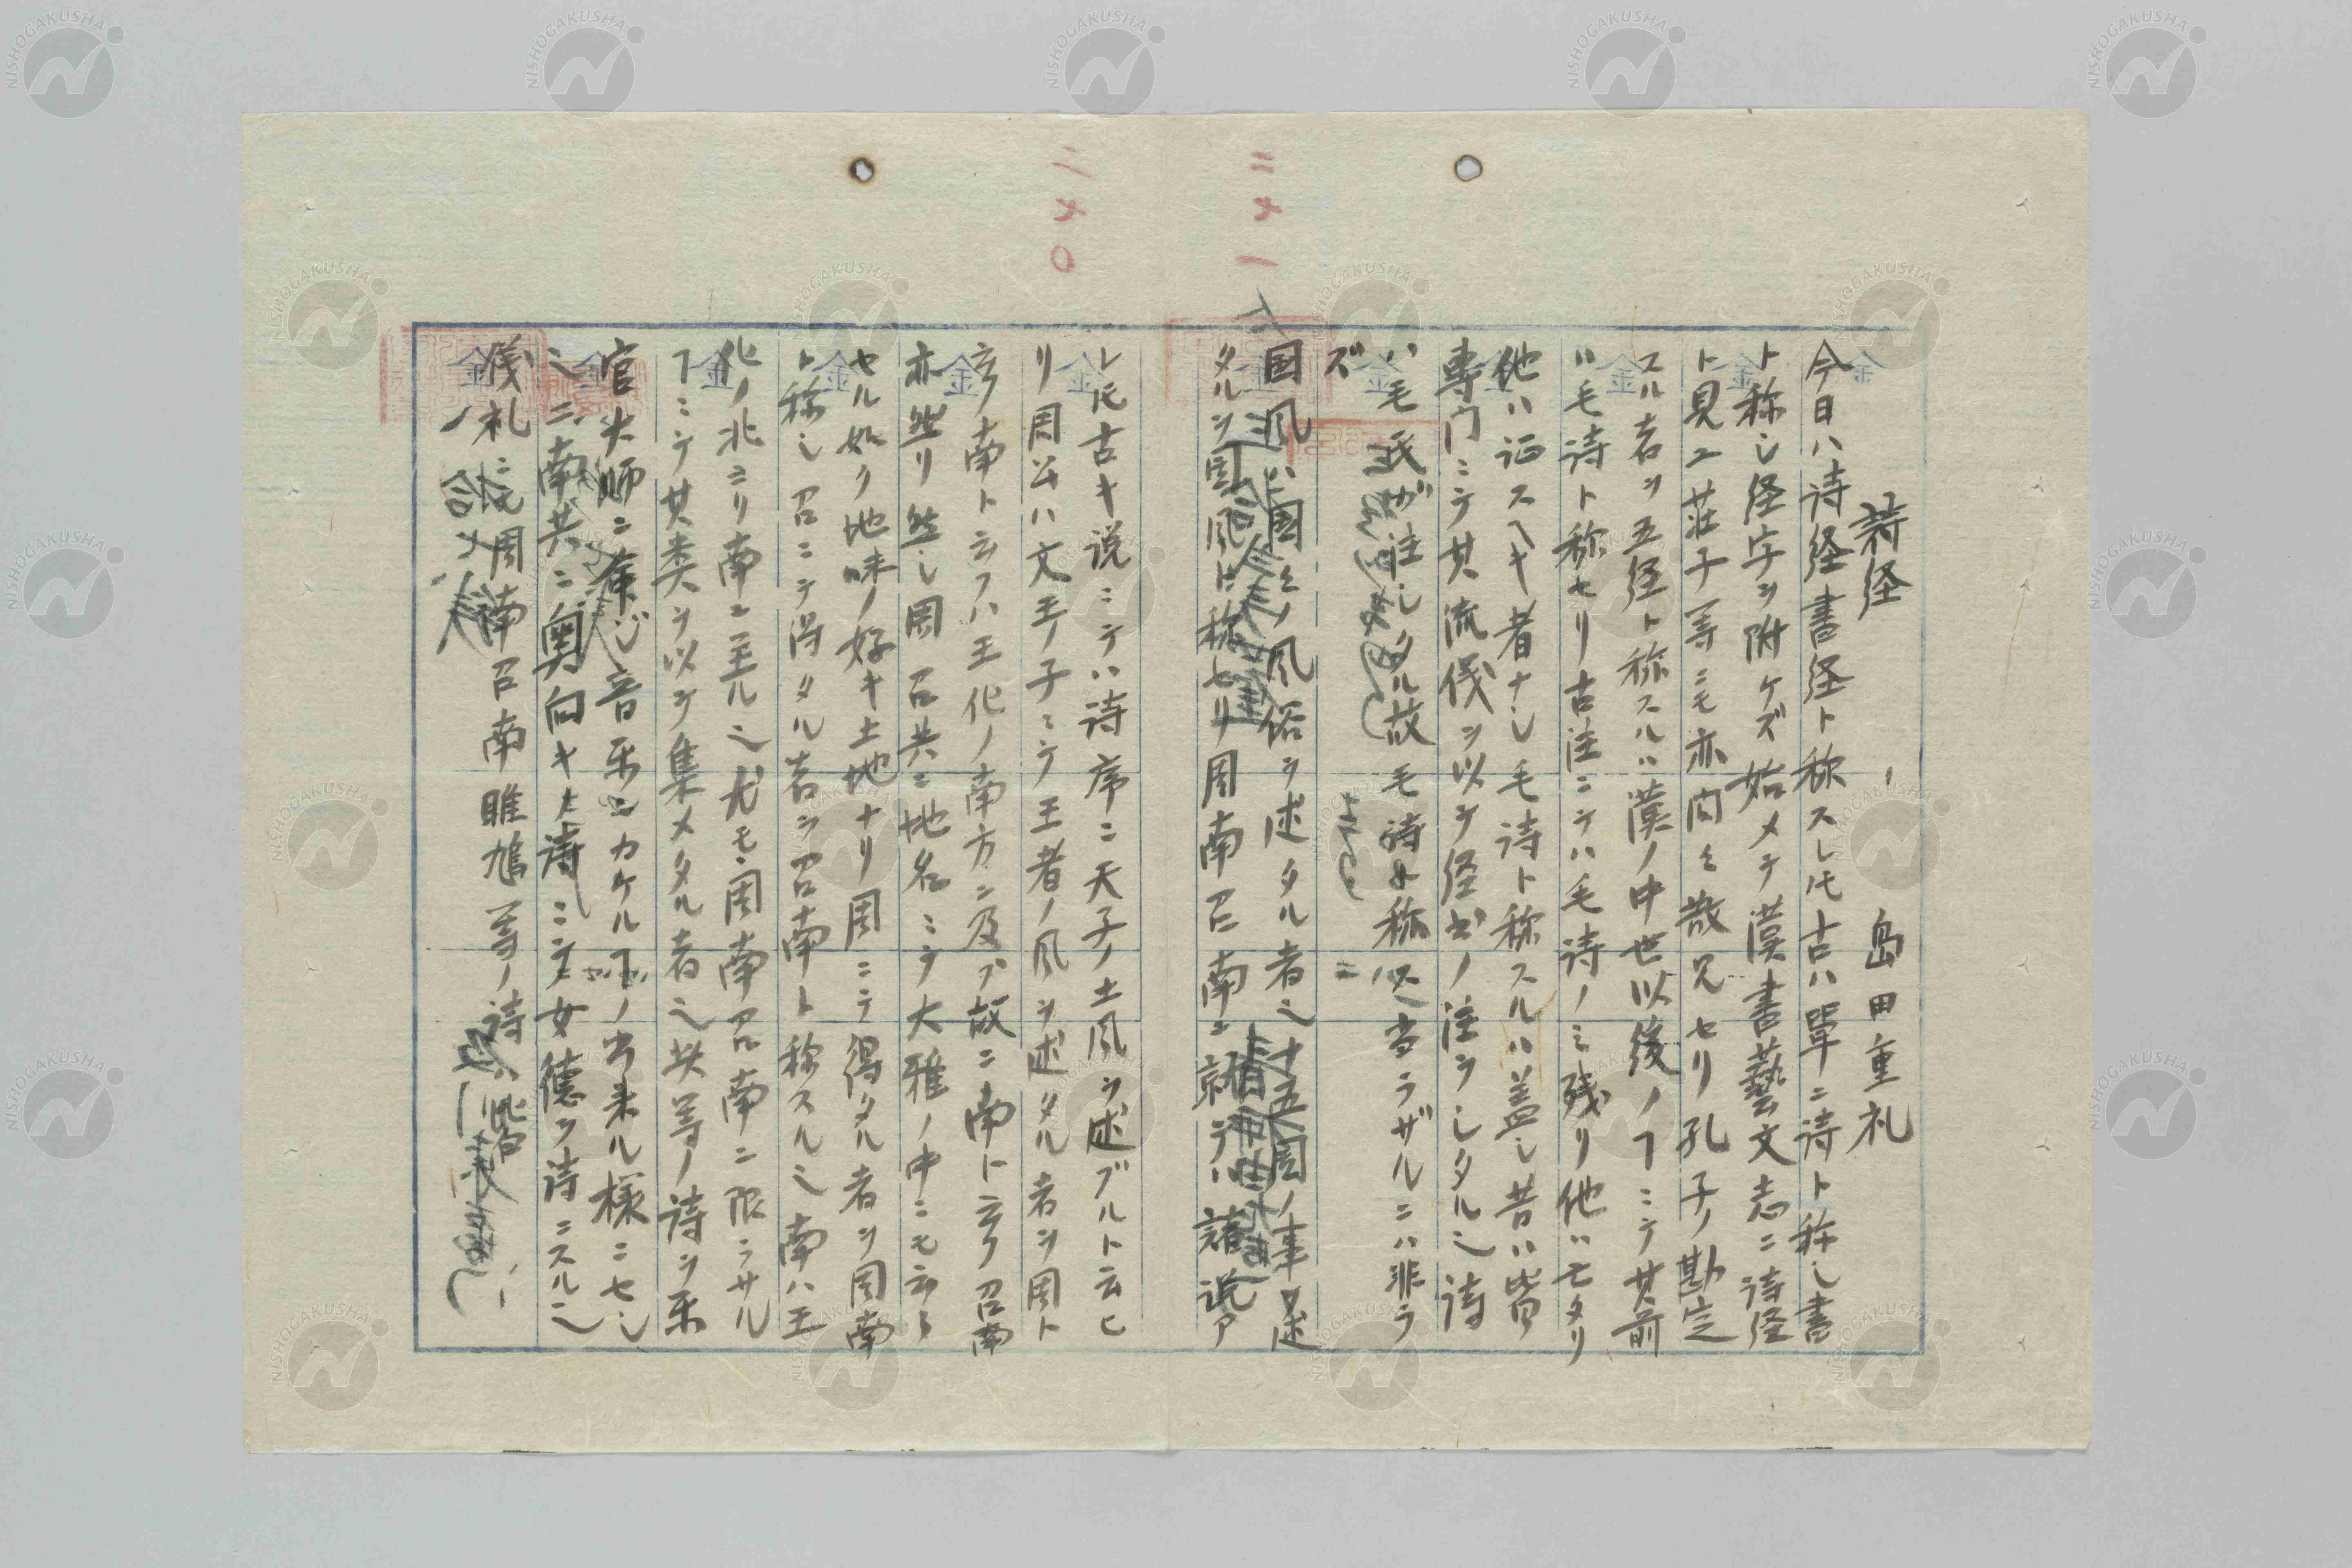 詩経 島田重礼
今日ハ詩経書経ト称スレ𪜈古ハ単ニ詩ト称シ書
ト称シ経字ヲ附ケズ始メテ漢書藝文志ニ詩経
ト見エ荘子等ニモ亦間々散見セリ孔子ノ勘定
スル者ヲ五経ト称スルハ漢ノ中世以後ノヿニテ其前
ハ毛詩ト称セリ古注ニテハ毛詩ノミ残リ他ハ
他ハ証スヘキ者ナシ毛詩ト称スルハ蓋シ昔ハ皆
専門ニテ其流儀ヲ以テ経書ノ注ヲシタル也詩
ハ毛氏ガ注シタル故毛詩ト称必当ラザルニハ非ラ
ズ
国風ハ国々ノ風俗ヲ述タル者也十五国ノ事ヲ述
タルヲ国風ト称セリ周南召南ニ就テハ諸説ア
レ𪜈古キ説ニテハ詩序ニ天子ノ土風ヲ述ブルト云ヒ
リ周公ハ文王ノ子ニテ王者ノ風ヲ述タル者ヲ周ト
云フ南ト云フハ王化ノ南方ニ及ブ故ニ南ト云フ召南
亦然リ然シ周召共ニ地名ニテ大雅ノ中ニモ云々
セル如ク地味ノ好キ土地ナリ周ニテ得タル者ヲ周南
ト称シ召ニテ得タル者ヲ召南ト称スル也南ハ王
化ノ北ヨリ南ニ至ル也尤モ周南召南ニ限ラサル
ヿニテ其類ヲ以テ集メタル者也此等ノ詩ヲ楽
官大師ニ命ジ音楽ニカケルヿノ出来ル様ニセシ
也二南共ニ奥向キノ詩ニテ女徳ヲ詩ニスル也
儀礼ニ𪜈周南召南雎鳩等ノ詩ハ皆
二七一
二七〇
金
NISHOGAKUSHA